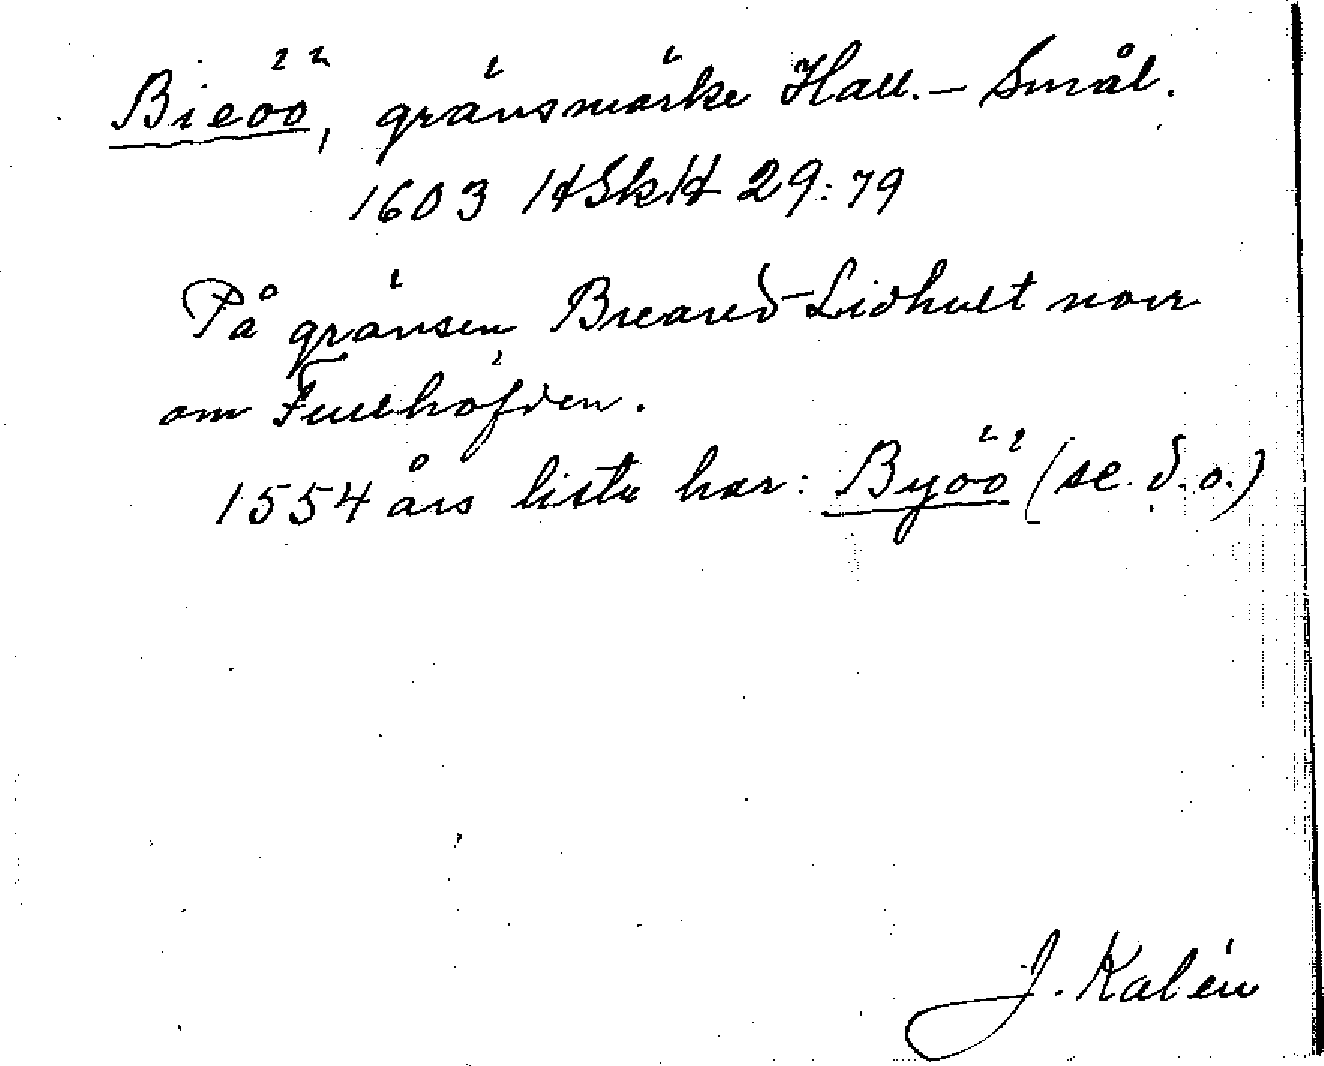 Bieöö, gränsmärke Hall.- Smål.
1603 HSkH 29:79
På gränsen Breared-Lidhult norr
om Fullhöfden.
1554 års lista har: Byöö (se d.o.)
J. Kalén